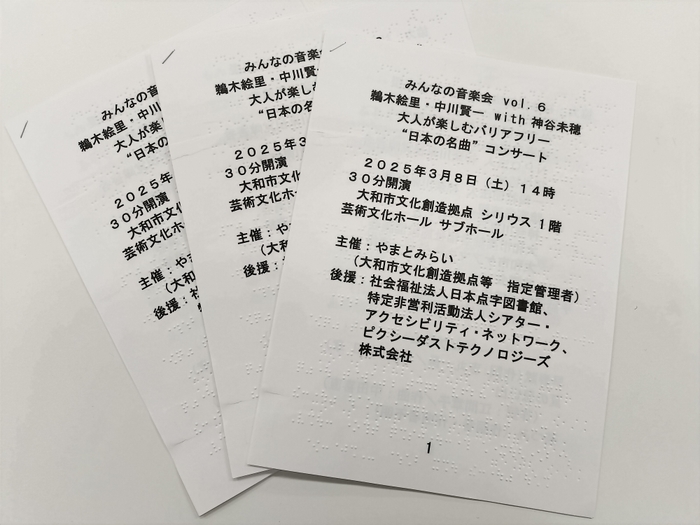 みんなの音楽会 vol.6
鵜木絵里・中川賢一 with 神谷未穂
大人が楽しむバリアフリー
“日本の名曲” コンサート
2025年3月8日(土) 14時
30分開演
大和市文化創造拠点 シリウス 1階
芸術文化ホール サブホール
主催:やまとみらい
(大和市文化創造拠点等 指定管理者)
後援:社会福祉法人日本点字図書館、
特定非営利活動法人シアター・
アクセシビリティ・ネットワーク、
ピクシーダストテクノロジーズ
株式会社
1
みんなの音楽会
鵜木絵里・中川賢一
大人が楽し
“日本の名
2025年3
30分開演
大和市文化
芸術文化ホ
主催:や
(大和
後援:社
みんなの音
鵜木絵里・中川
大人が楽
“日本の
2025年
30分開演
大和市文
芸術文化ホー
主催:やま
(大和
後援:社